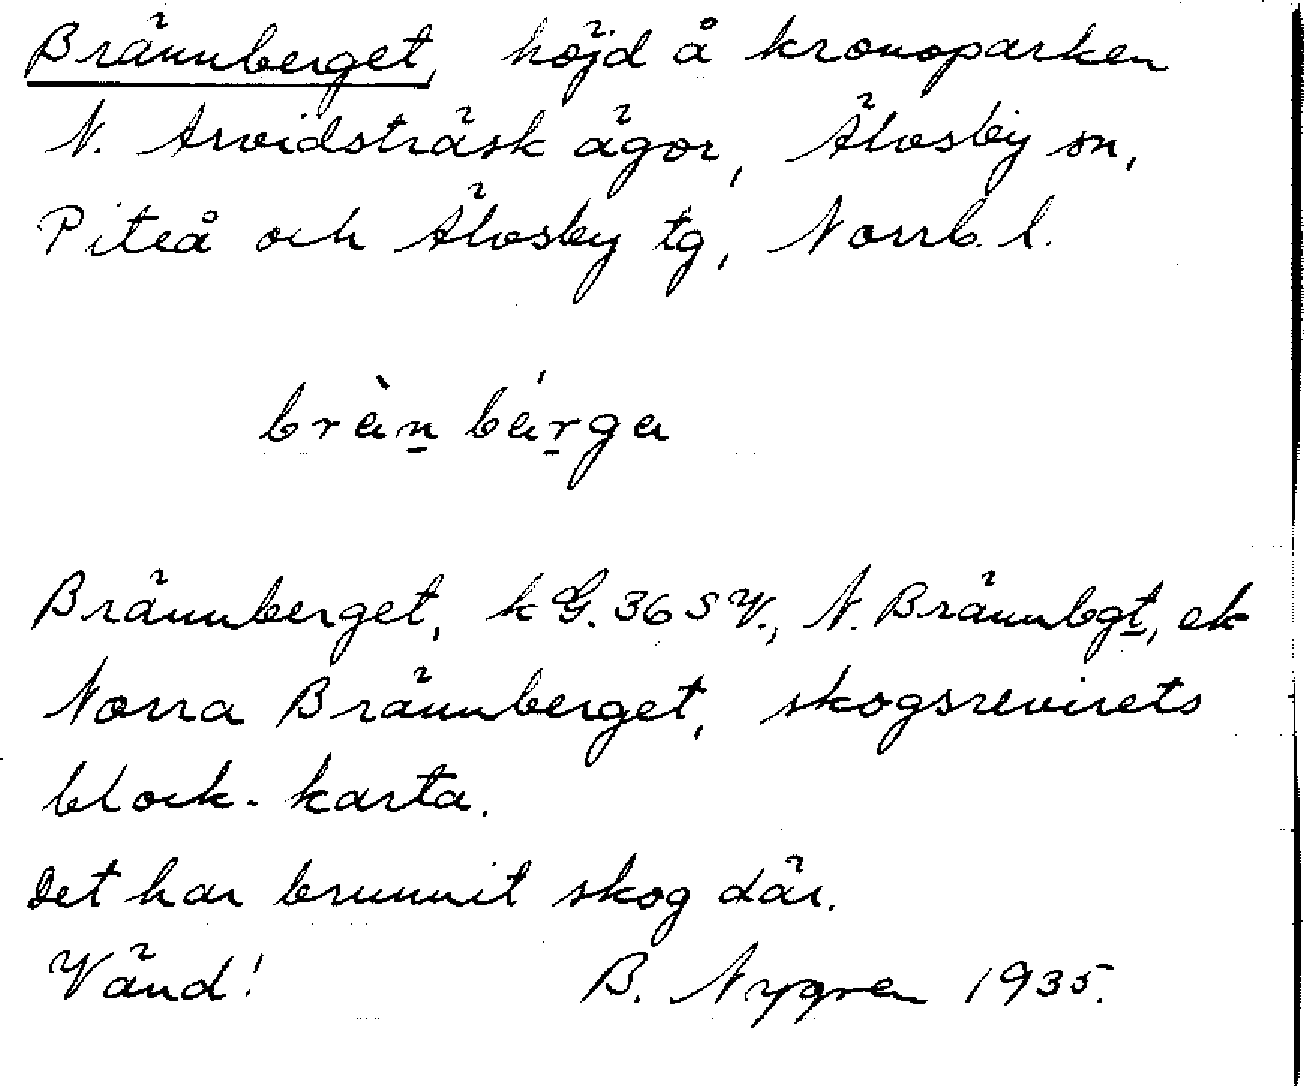 Brännberget, höjd å kronoparken
N. Arvidsträsk ägor, Älvsby sn,
Piteå och Älvsby tg, Norrb. l.
brèn bérga
Brännberget, k G. 36 S V., N. Brännbgt, ek
Norra Brännberget, skogsrevirets
block-karta.
Det har brunnit skog där.
Vänd! B. Nygren 1935.